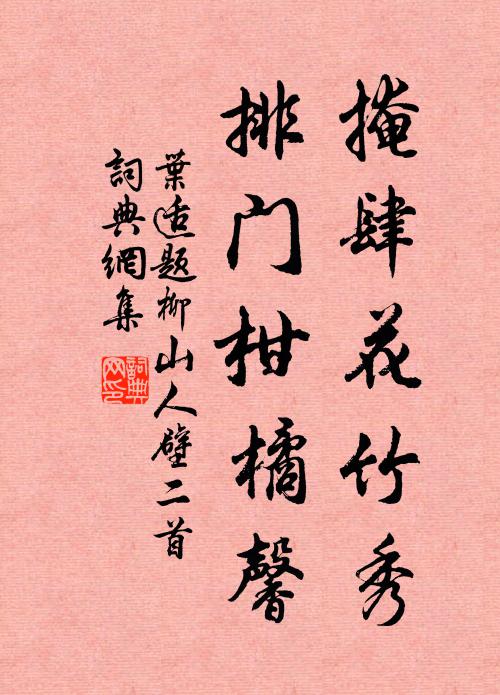 掩肆花竹秀
排门柑橘馨
葉适題柳山人壁二首
詞典網集
詞典網印